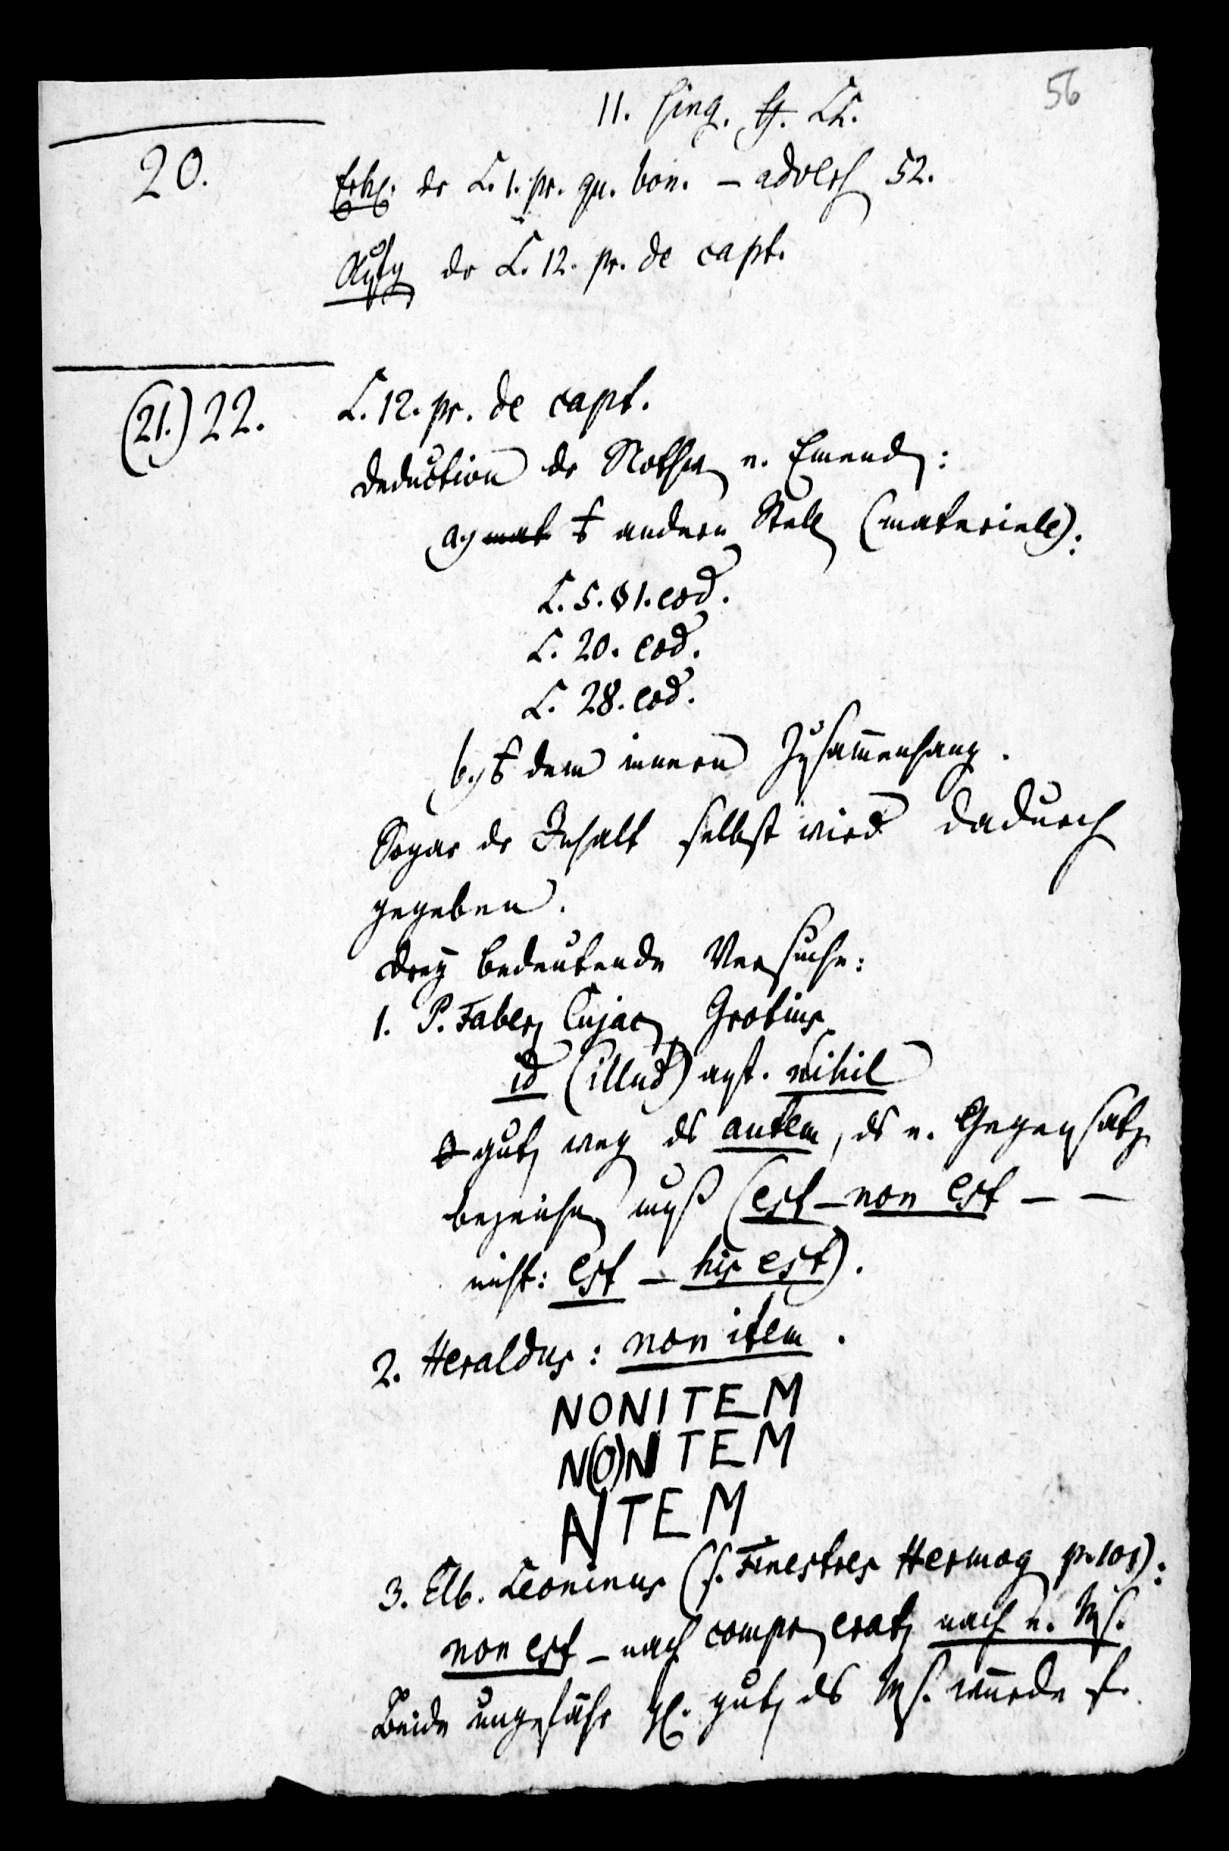 56
11. sing. LL.
20.
Erkl. der L. 1. pr. qu. bon. – advers 52.
Aufg der L. 12. pr. de capt.
(21.) 22.
L. 12. pr. de capt.
Deduction der Nothw e. Emend:
a, mat andern Stell (materiell):
L. 5. § 1. eod.
L. 20. eod.
L. 28. eod.
b, dem innern Zusammenhang.
Sogar der Inhalt selbst wird dadurch
gegeben.
Drey bedeutende Versuche:
1. P. Faber, Cujac, Grotius
id (illud) anst. nihil
gut, weg des autem, ds e. Gegensatz
bezeichn muß (est – non est – –
nicht: est – his est).
2. Heraldus: non item.
NONITEM
N(O)NITEM
NTEM
3. Elb. Leoninus (s. Finestres Hermog p. 101):
non est – nach compr erat, nach e. Ms.
Beide ungefähr gl. gut, ds Ms. würde f.